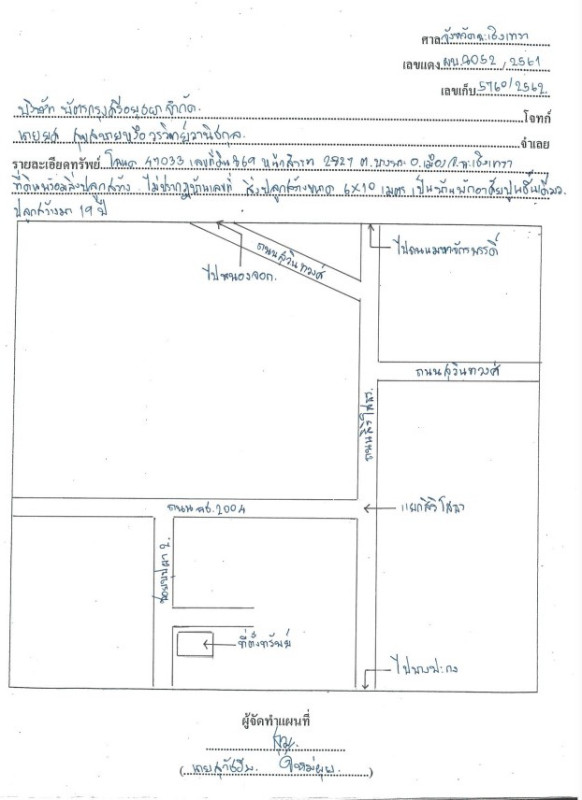 ศาล จังหวัดฉะเชิงเทรา
เลขแดง ผบ.9052 / 2561
เลขเก็บ 5760/2562
บริษัท บัตรกรุงศรีอยุธยา จำกัด. โจทก์
นายยศ หรือวรวิทย์วานิชกุล จำเลย
รายละเอียดทรัพย์ โฉนด 47033 เลขที่ดิน 769 หน้าสำรวจ 2927 ต.บางพระ อ.เมือง จ.ฉะเชิงเทรา
ที่ดินพร้อมสิ่งปลูกสร้าง ไม่ปรากฏบ้านเลขที่ สิ่งปลูกสร้างขนาด 6x10 เมตร เป็นบ้านพักอาศัยปูนชั้นเดียว
ปลูกสร้างมา 19 ปี
ไปหนองจอก.
ถนนสุวินทวงศ์
ไปถนนมหาจักรพรรดิ์
ถนนสุวินทวงศ์
ถนนสิริโสธร
ถนน ฉช.2004
แยกสิริโสธร
ซอย 2
ที่ตั้งทรัพย์
ไปบางปะกง
ผู้จัดทำแผนที่